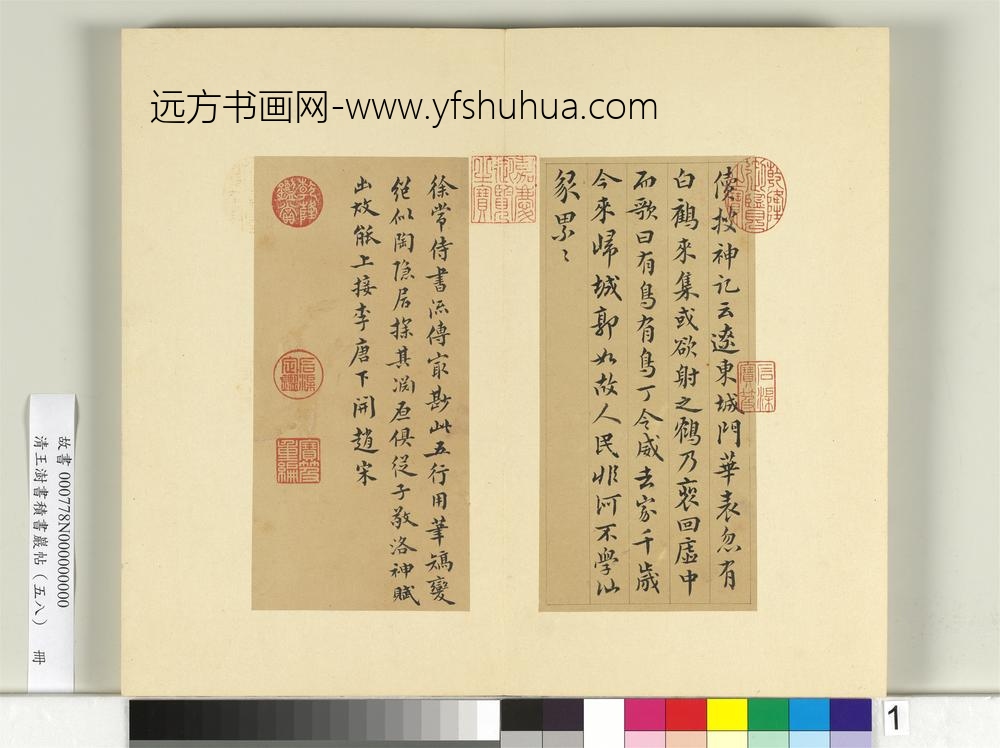 远方书画网-www.yfshuhua.com
續搜神記云遼東城門華表忽有
白鶴來集或欲射之鶴乃裵回虛中
而歌曰有鳥有鳥丁令威去家千歲
今來歸城郭如故人民非何不學仙
冢累〻
徐常侍書流傳冣尠此五行用筆矯變
絕似陶隐居探其淵原俱従子敬洛神賦
出故能上接李唐下開趙宋
嘉慶御覽之寶
乾隆鑑賞
石渠定鑑
寶笈重編
石渠寶笈
故書 000778N000000000
清王澍書積書巖帖（五八） 冊
1